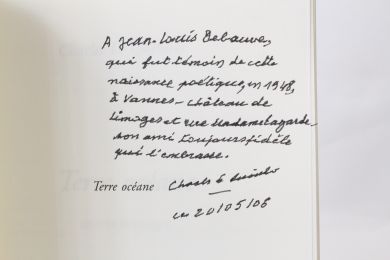 A Jean-Louis Debauve,
qui fut témoin de cette
naissance poétique, en 1948,
à Vannes - château de
Limoges et rue Madame Lagarde -
son ami toujours fidèle
qui l'embrasse.
Terre océane Charles
20/05/06